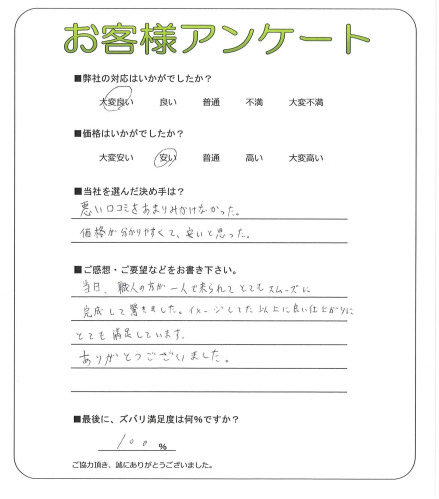 お客様アンケート
■弊社の対応はいかがでしたか？
大変良い　良い　普通　不満　大変不満
■価格はいかがでしたか？
大変安い　安い　普通　高い　大変高い
■当社を選んだ決め手は？
悪い口コミをあまりみかけなかった。
価格が分かりやすくて、安いと思った。
■ご感想・ご要望などをお書き下さい。
当日、職人の方が一人で来られてとてもスムーズに
完成して驚きました。イメージしてた以上に良い仕上がりに
とても満足しています。
ありがとうございました。
■最後に、ズバリ満足度は何％ですか？
100％
ご協力頂き、誠にありがとうございました。